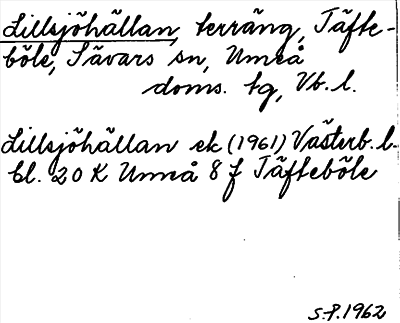 Lillsjöhällan, terräng, Täfte-
böle, Sävars sn, Umeå
doms. tg, Vb. l.
Lillsjöhällan ek (1961) Västerb. l.
bl. 20 K Umeå 8 f Täfteböle
S.P. 1962